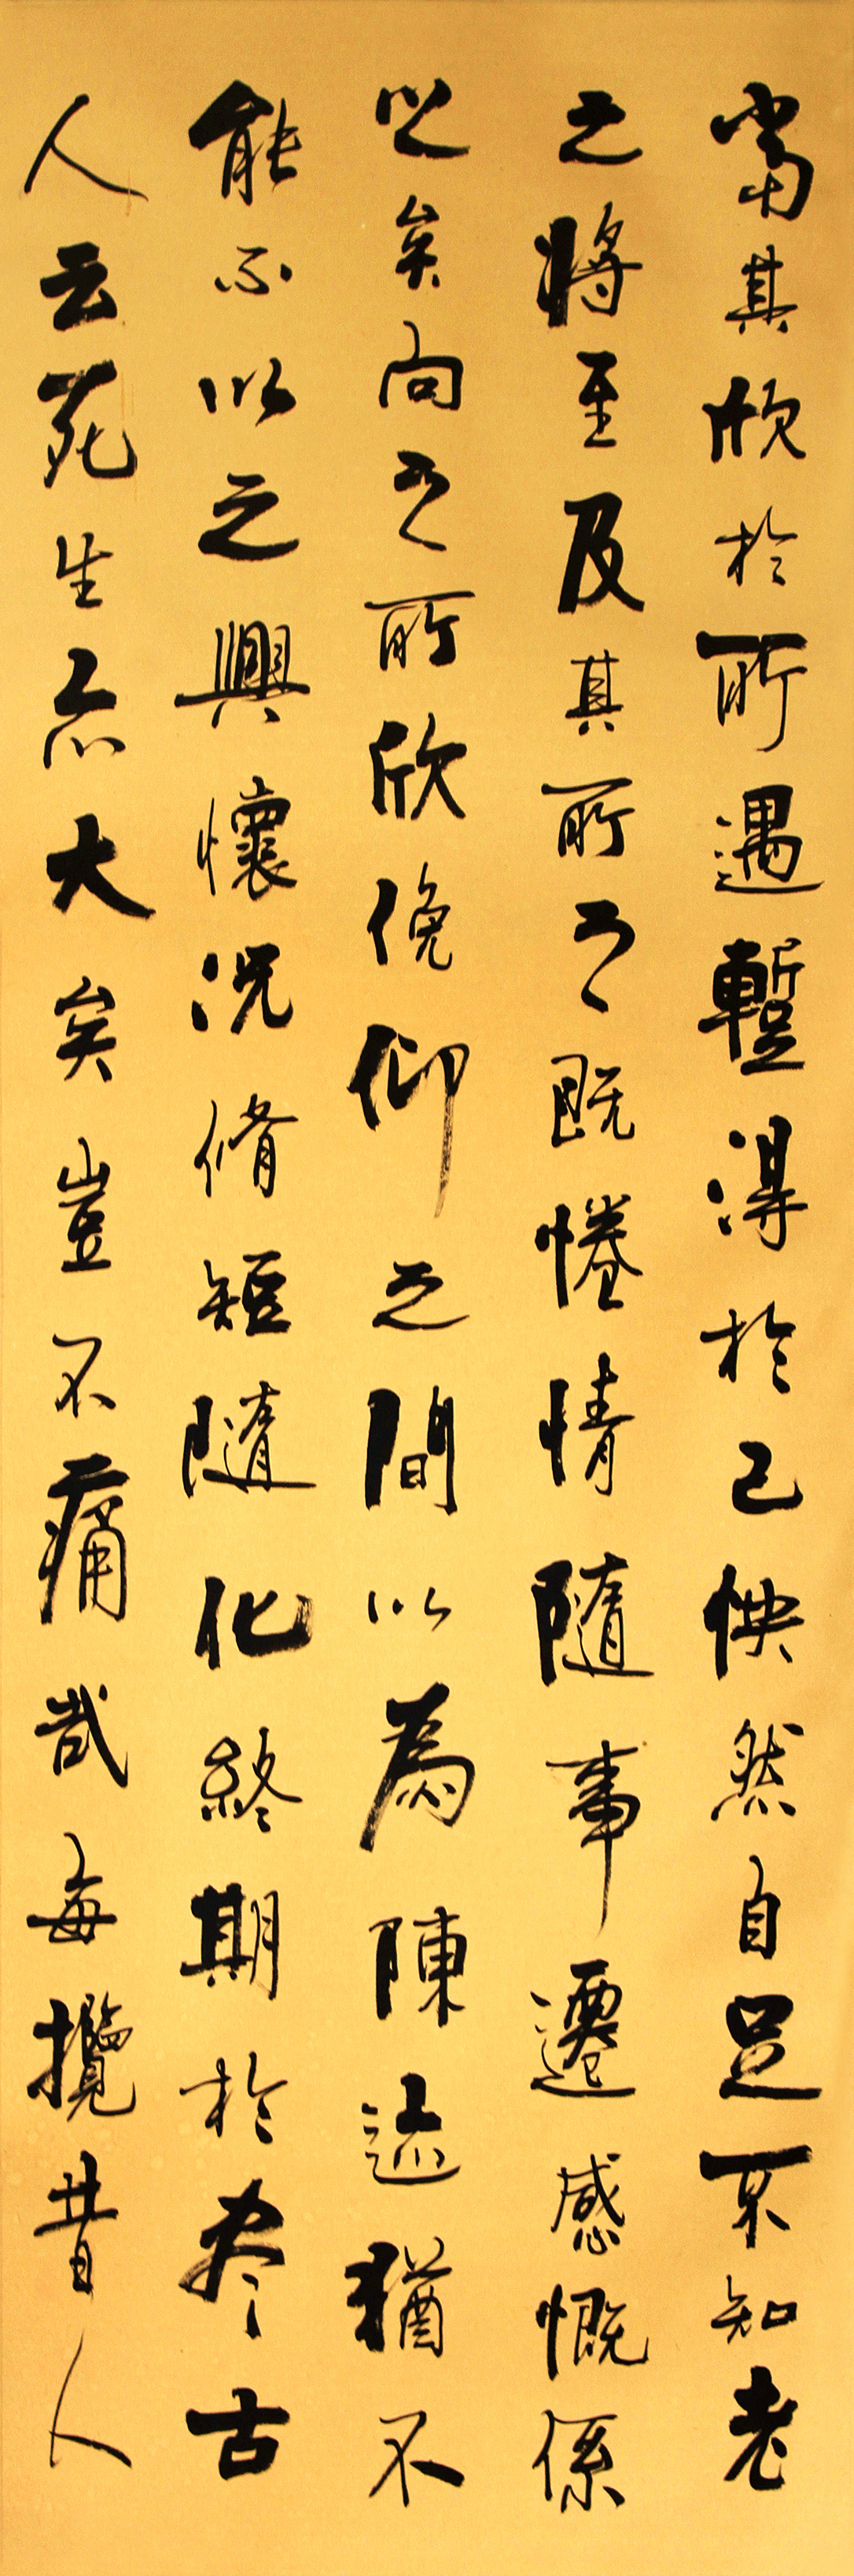 當其欣於所遇暫得於己怏然自足不知老
之將至及其所之既惓情隨事遷感慨係
之矣向之所欣俛仰之間以為陳迹猶不
能不以之興懷況脩短隨化終期於盡古
人云死生亦大矣豈不痛哉每攬昔人